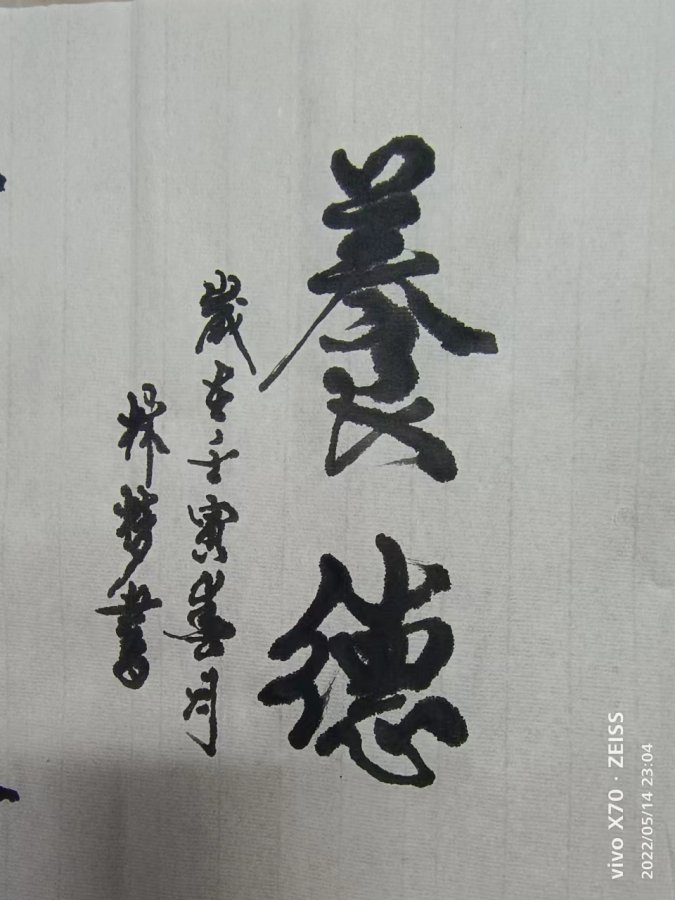 養德
歲在壬寅春月
梦書
vivo X70 · ZEISS
2022/05/14 23:04